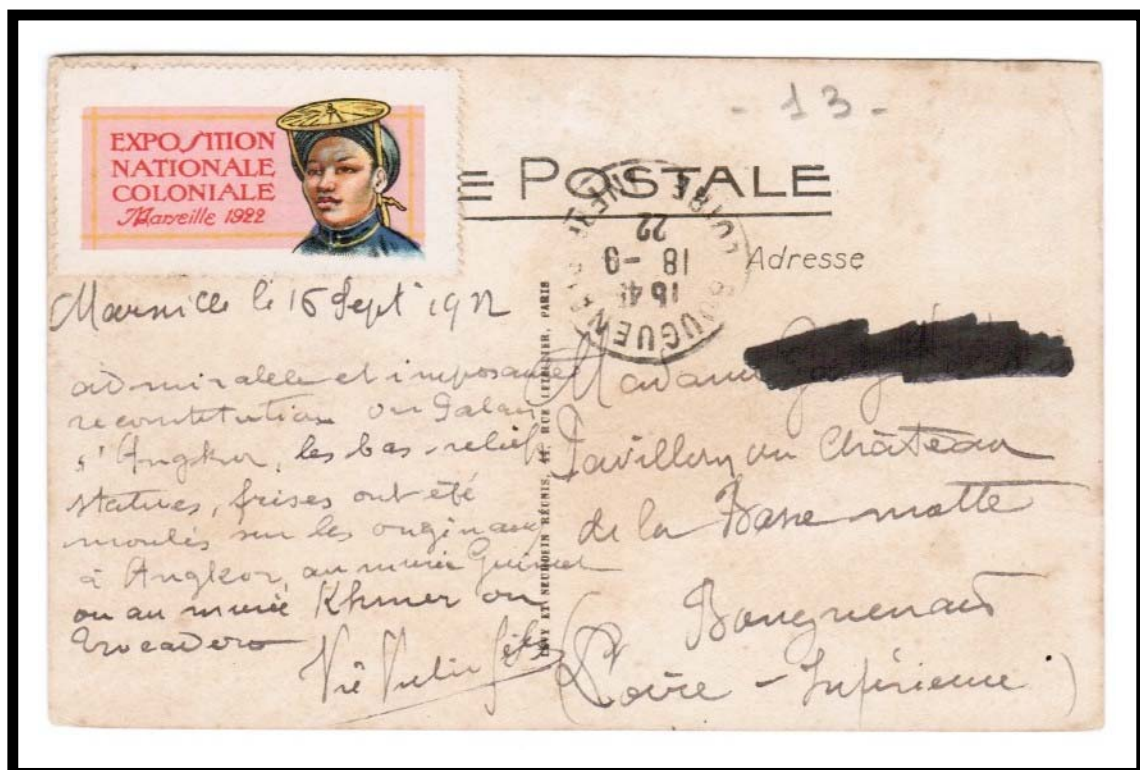 - 13 -
EXPOSITION
NATIONALE
COLONIALE
Marseille 1922
E POSTALE
Adresse
BOUGUENAIS
1645
18 - 9
22
LOIRE INFERIEURE
LEVY ET NEURDEIN RÉUNIS, 44, RUE LETELLIER, PARIS
Marseille le 16 Sept 1922
admirable et imposante
reconstitution du Palais
d'Angkor, les bas-reliefs
statues, frises ont été
moulés sur les originaux
à Angkor, au musée Guimet
ou au musée Khmer du
Trocadero
Madame
Pavillon du Château
de la Basse motte
Bouguenais
(Loire - Inférieure)